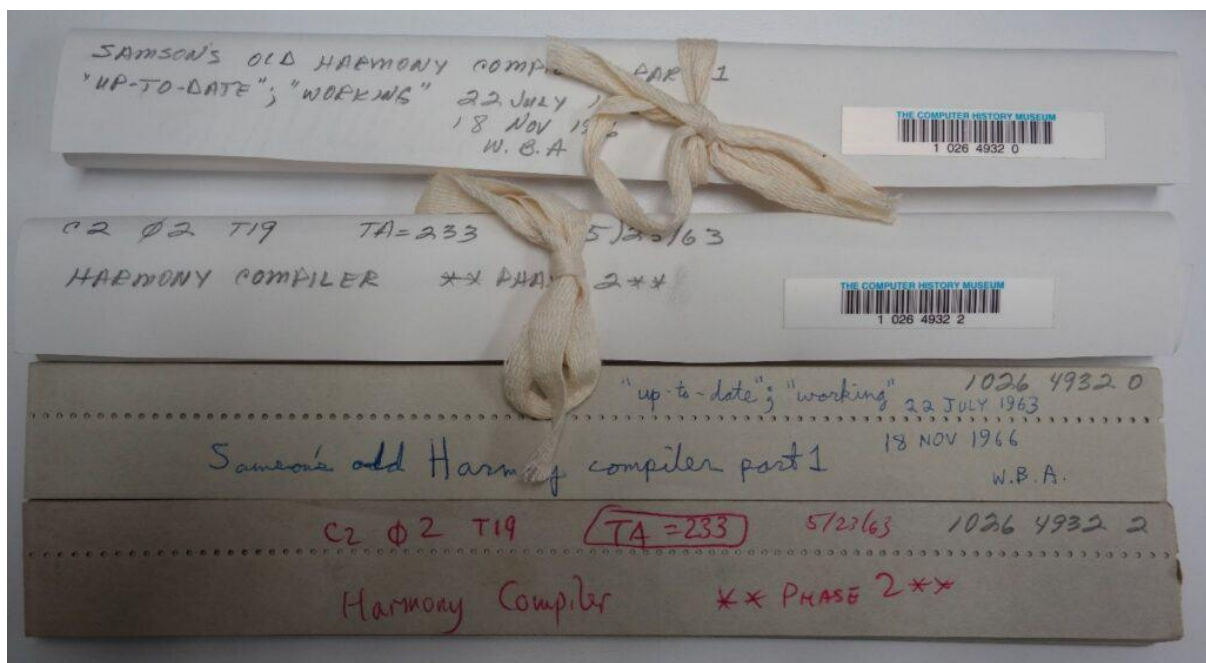 SAMSON'S OLD HARMONY PART 1
"UP-TO-DATE"; "WORKING" 22 JULY
18 NOV
W. B. A
THE COMPUTER HISTORY MUSEUM
1 026 4932 0
C2 Ø2 T19 TA=233 5/23/63
HARMONY COMPILER ** 2**
THE COMPUTER HISTORY MUSEUM
1 026 4932 2
1026 4932 0
"up-to-date"; "working" 22 JULY 1963
18 NOV 1966
Samson's old Harmony compiler part 1
W.B.A.
C2 Ø2 T19 TA=233 5/23/63 1026 4932 2
Harmony Compiler ** PHASE 2 **